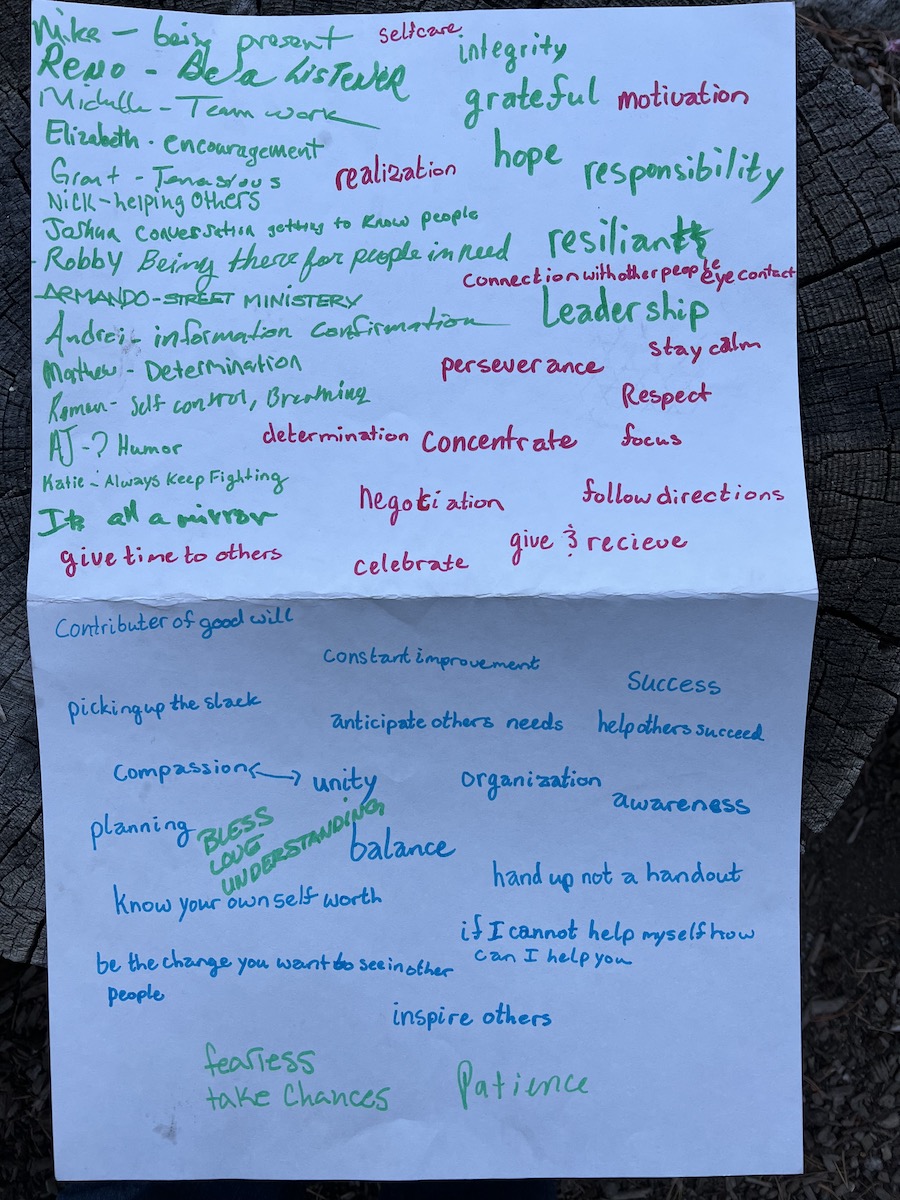 Mike – being present
selfcare
integrity
Reno - Be a Listener
grateful
motivation
Michelle - Team work
Elizabeth - encouragement
hope
Grant - Tenasious
realization
responsibility
Nick - helping others
Joshua conversation getting to know people
resiliant
- Robby Being there for people in need
Connection with other people eye contact
ARMANDO - STREET MINISTERY
Leadership
Andrei - information confirmation
stay calm
Mathew - Determination
perseverance
Roman - Self control, Breathing
Respect
AJ - ? Humor
determination
concentrate
focus
Katie - Always Keep Fighting
negotiation
follow directions
Its all a mirror
give time to others
celebrate
give & recieve
Contributer of good will
constant improvement
success
picking up the slack
anticipate others needs
help others succeed
compassion ↔ unity
organization
awareness
planning
BLESS
LOVE
UNDERSTANDING
balance
hand up not a handout
know your own self worth
if I cannot help myself how
can I help you
be the change you want to see in other
people
inspire others
fearless
take Chances
Patience